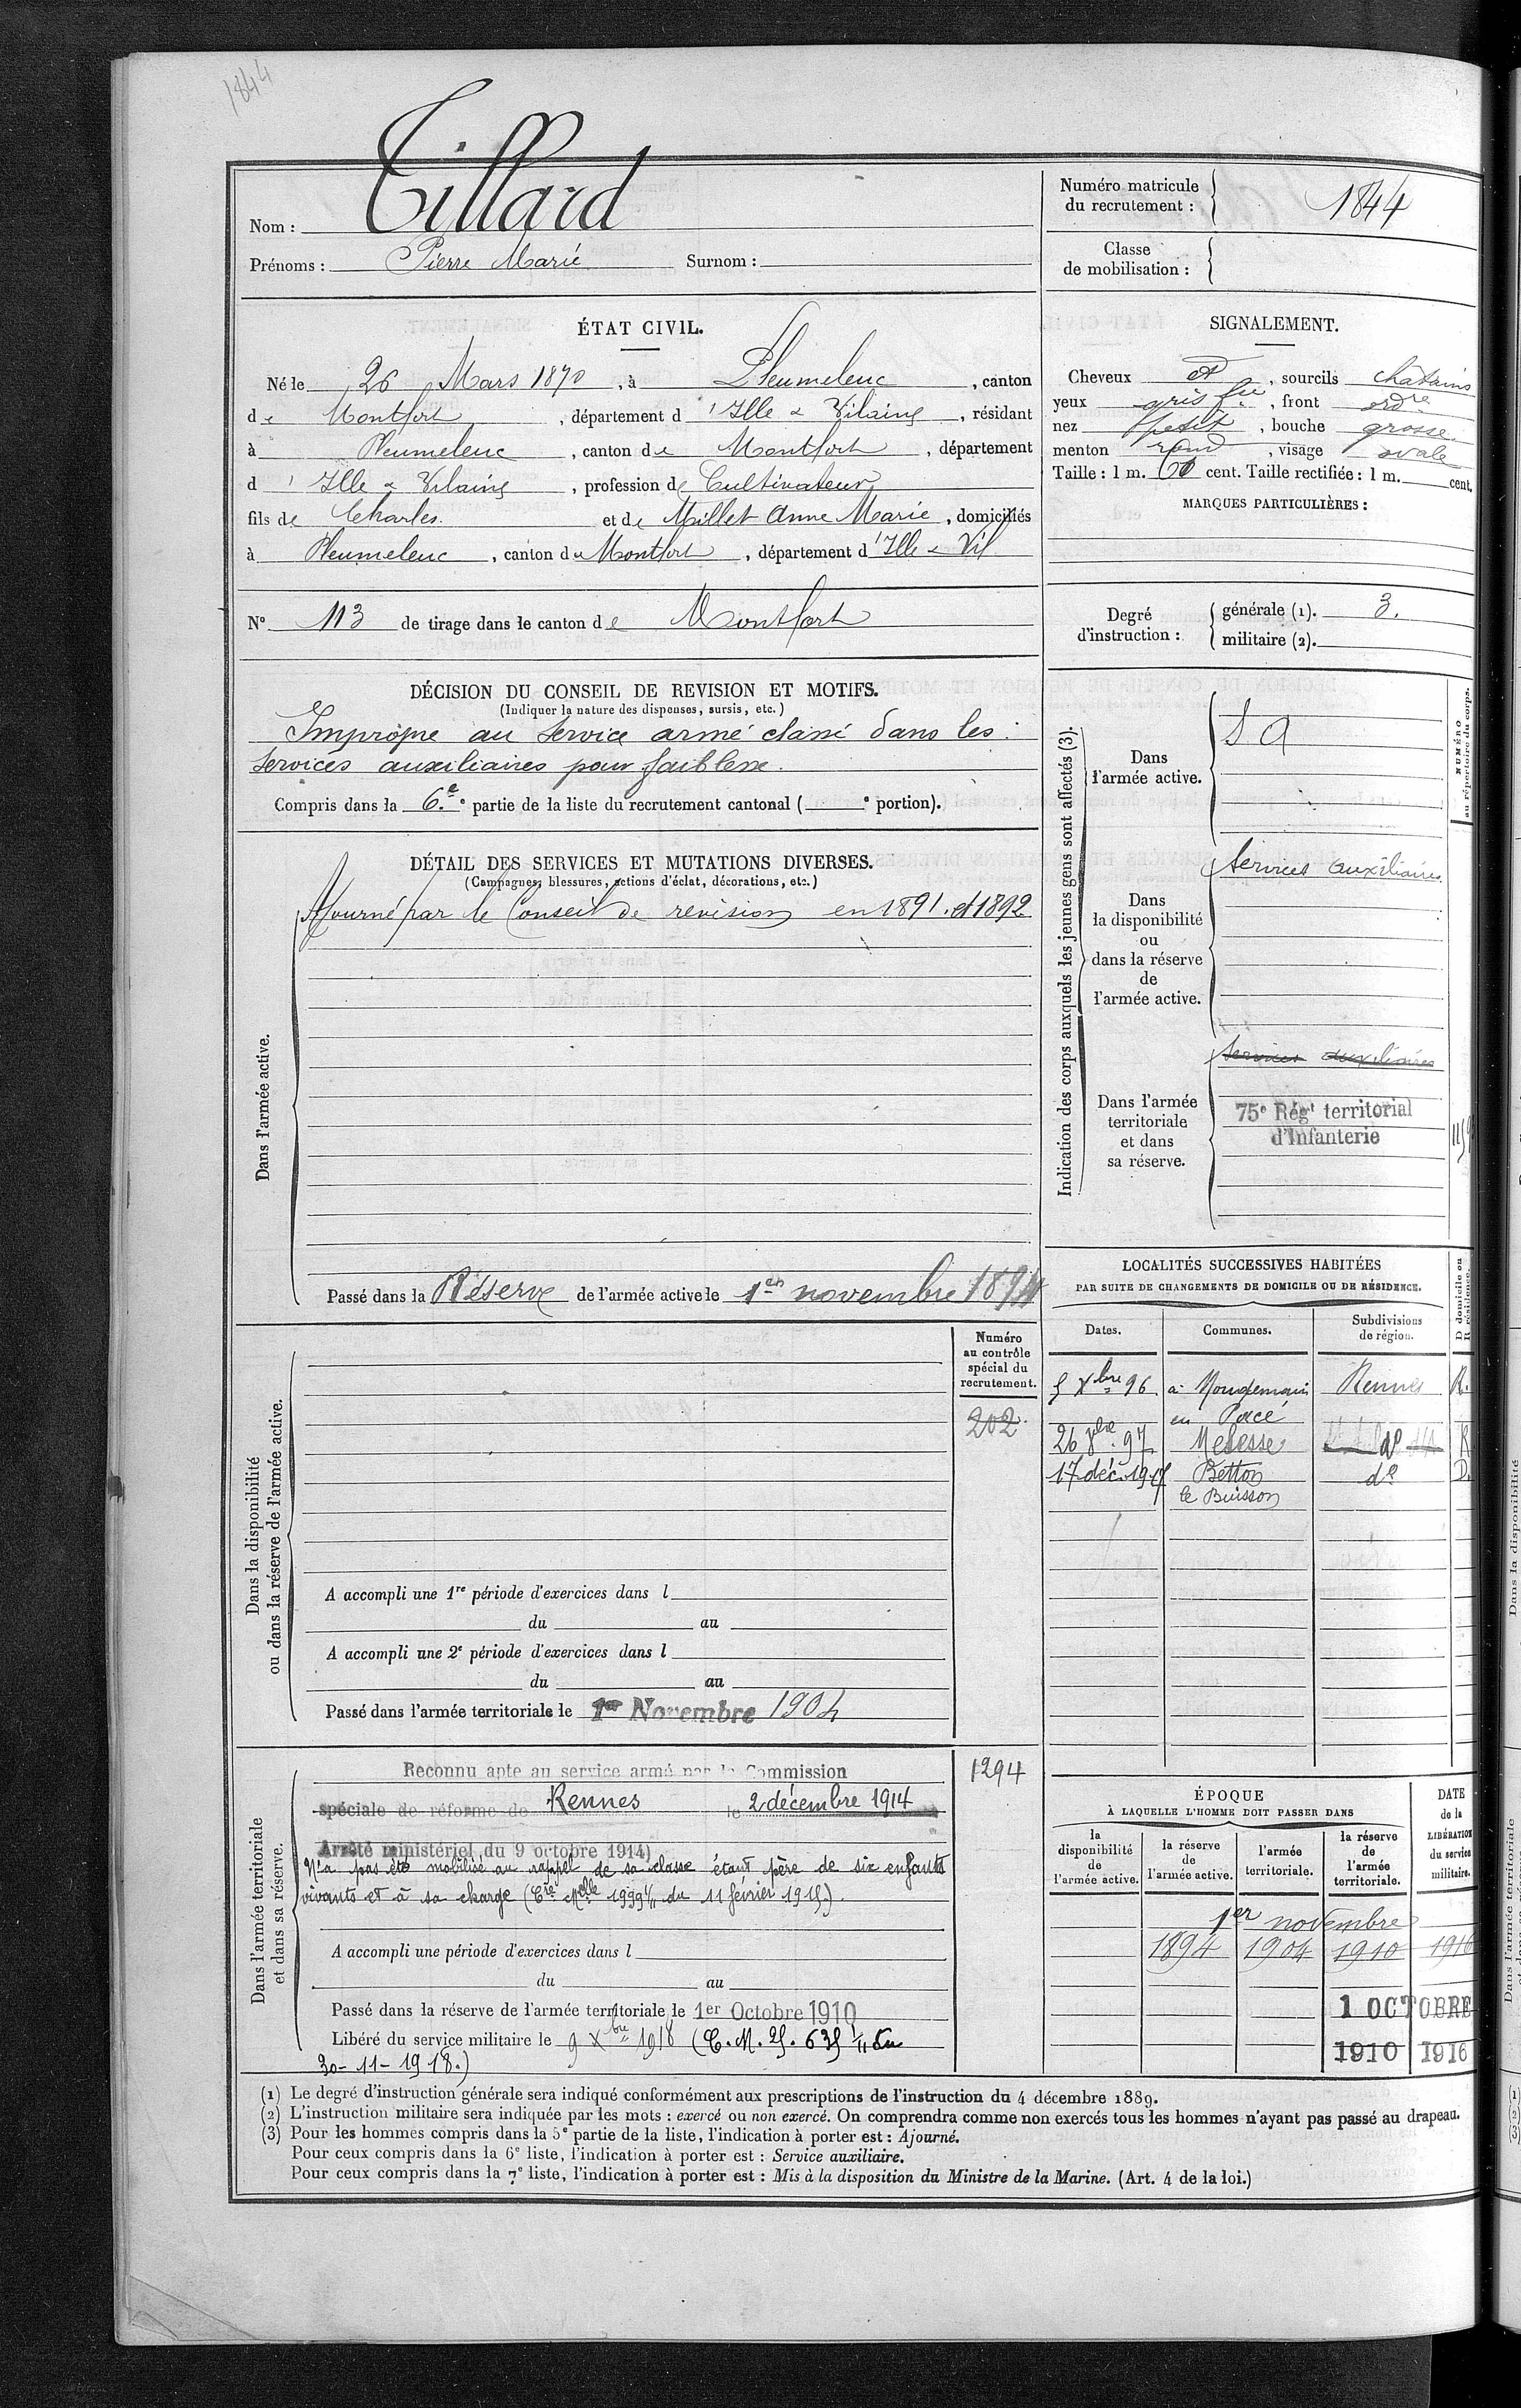 1844
Tillard
Nom :
Prénoms : Pierre Marie Surnom :
Numéro matricule du recrutement : 1844
Classe de mobilisation :
ÉTAT CIVIL.
Né le 26 Mars 1870, à Pleumeleuc, canton
de Montfort, département d'Ille & Vilaine, résidant
à Pleumeleuc, canton de Montfort, département
d'Ille & Vilaine, profession de Cultivateur
fils de Charles et de Millet Anne Marie, domiciliés
à Pleumeleuc, canton de Montfort, département d'Ille & Vil
N° 113 de tirage dans le canton de Montfort
SIGNALEMENT.
Cheveux et, sourcils châtains
yeux gris, front ordre
nez petit, bouche grosse
menton rond, visage ovale
Taille : 1 m. 60 cent. Taille rectifiée : 1 m. cent.
MARQUES PARTICULIÈRES :
Degré d'instruction : générale (1). 3.
militaire (2).
DÉCISION DU CONSEIL DE REVISION ET MOTIFS.
(Indiquer la nature des dispenses, sursis, etc.)
Impropre au service armé classé dans les
services auxiliaires pour faiblesse.
Compris dans la 6e e partie de la liste du recrutement cantonal ( e portion).
DÉTAIL DES SERVICES ET MUTATIONS DIVERSES.
(Campagnes, blessures, actions d'éclat, décorations, etc.)
Dans l'armée active.
Ajourné par le Conseil de revision en 1891. et 1892
Passé dans la Réserve de l'armée active le 1er novembre 1894
Indication des corps auxquels les jeunes gens sont affectés (3).
NUMÉRO au répertoire du corps.
Dans l'armée active.
S. A
Dans la disponibilité ou dans la réserve de l'armée active.
Services auxiliaires
Dans l'armée territoriale et dans sa réserve.
Services auxiliaires
75e Régt territorial
d'Infanterie
Dans la disponibilité ou dans la réserve de l'armée active.
Numéro au contrôle spécial du recrutement.
202
A accompli une 1re période d'exercices dans l
du au
A accompli une 2e période d'exercices dans l
du au
Passé dans l'armée territoriale le 1er Novembre 1904
LOCALITÉS SUCCESSIVES HABITÉES
PAR SUITE DE CHANGEMENTS DE DOMICILE OU DE RÉSIDENCE.
Dates. Communes. Subdivisions de région. D domicile ou R résidence.
5 Xbre 96 à Rennes R.
en Pacé
26 97 Melesse do R
17 déc 19 Betton do D.
le Buisson
Dans l'armée territoriale et dans sa réserve.
1294
Reconnu apte au service armé par la Commission
spéciale de réforme de Rennes le 2 décembre 1914
Arrêté ministériel du 9 octobre 1914)
N'a pas été mobilisé au rappel de sa classe étant père de six enfants
vivants et à sa charge (Cre Melle 1999 1/11 du 11 février 1915.)
A accompli une période d'exercices dans l
du au
Passé dans la réserve de l'armée territoriale le 1er Octobre 1910
Libéré du service militaire le 9 Xbre 1918 (C. M. 25. 635 1/11 du
30-11-1918.)
ÉPOQUE
À LAQUELLE L'HOMME DOIT PASSER DANS
la disponibilité de l'armée active. la réserve de l'armée active. l'armée territoriale. la réserve de l'armée territoriale. DATE de la LIBÉRATION du service militaire.
1er novembre
1894 1904 1910 1916
1 OCTOBRE
1910 1916
(1) Le degré d'instruction générale sera indiqué conformément aux prescriptions de l'instruction du 4 décembre 1889.
(2) L'instruction militaire sera indiquée par les mots : exercé ou non exercé. On comprendra comme non exercés tous les hommes n'ayant pas passé au drapeau.
(3) Pour les hommes compris dans la 5e partie de la liste, l'indication à porter est : Ajourné.
Pour ceux compris dans la 6e liste, l'indication à porter est : Service auxiliaire.
Pour ceux compris dans la 7e liste, l'indication à porter est : Mis à la disposition du Ministre de la Marine. (Art. 4 de la loi.)